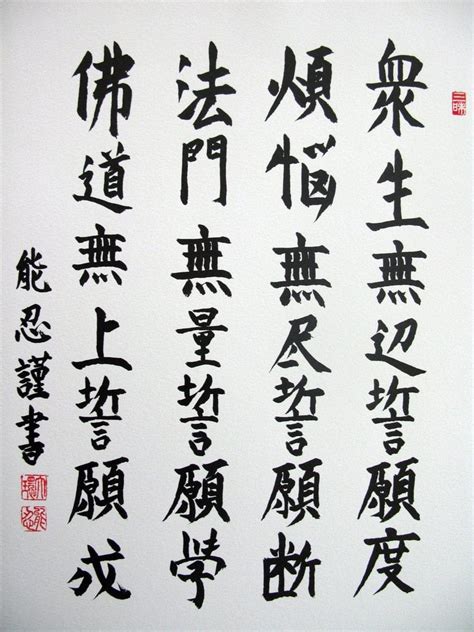 三昧
衆生無辺誓願度
煩悩無尽誓願断
法門無量誓願學
佛道無上誓願成
能忍謹書